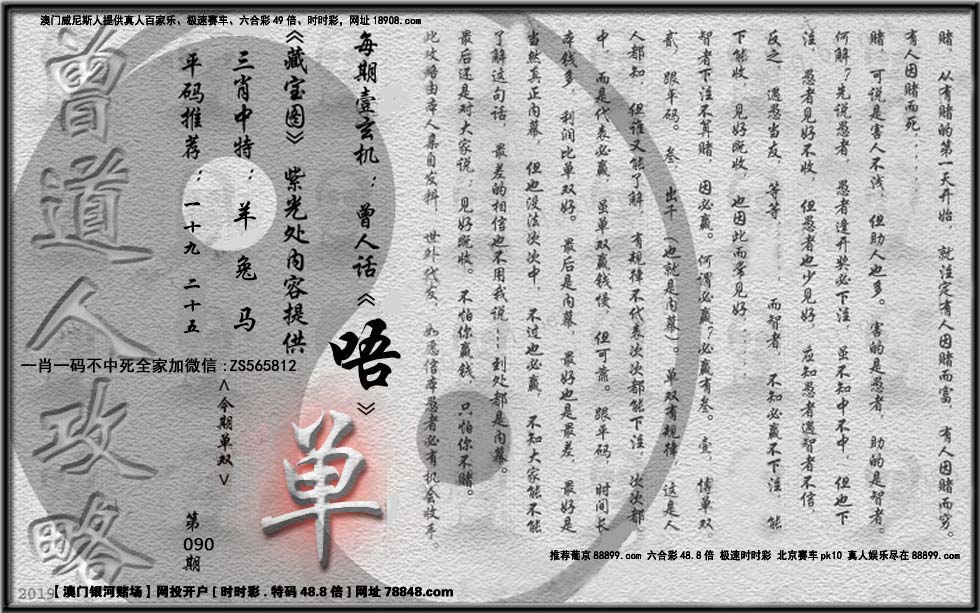 澳门威尼斯人提供真人百家乐、极速赛车、六合彩49倍、时时彩，网址18908.com
赌，从有赌的第一天开始，就注定有人因赌而富，有人因赌而穷。
有人因赌而死......
赌，可说是害人不浅，但助人也多。害的是愚者，助的是智者。
何解？先说愚者，愚者逢开奖必下注，虽不知中不中，但也下
注，愚者见好不收，但愚者也少见好，应知愚者遇智者不信，
反之，遇愁当友，等等......而智者，不知必赢不下注，能
下能收，见好既收，也因此而常见好......
智者下注不算赌，因必赢。何谓必赢？必赢有叁。壹，博单双，
贰，跟平码。叁，出千（也就是内幕）。单双有规律，这是人
人都知，但谁又能了解，有规律不代表次次都能下注，次次都
中，而是代表必赢，虽单双赢钱慢，但可靠。跟平码，时间长，
本钱多，利润比单双好。最后是内幕，最好也是最差，最好是
当然真正内幕，但也没法次次中，不过也必赢，不知大家能不能
了解这句话，最差的相信也不用我说...到处都是内幕。
最后还是对大家说：见好既收。不怕你赢钱，只怕你不赌。
此攻略由本人亲自发料，世外代友，如愿信本愚者必有机会收手。
每期壹玄机：曾人话《唔》
《藏宝图》紫光处内容提供
三肖中特：羊 兔 马
平码推荐：一十九 二十五
一肖一码不中死全家加微信:ZS565812
<今期单双>
单
第
090
期
曾道人攻略
推荐葡京88899.com 六合彩48.8倍 极速时时彩 北京赛车pk10 真人娱乐尽在88899.com
2019【澳门银河赌场】网投开户[时时彩.特码48.8倍]网址78848.com